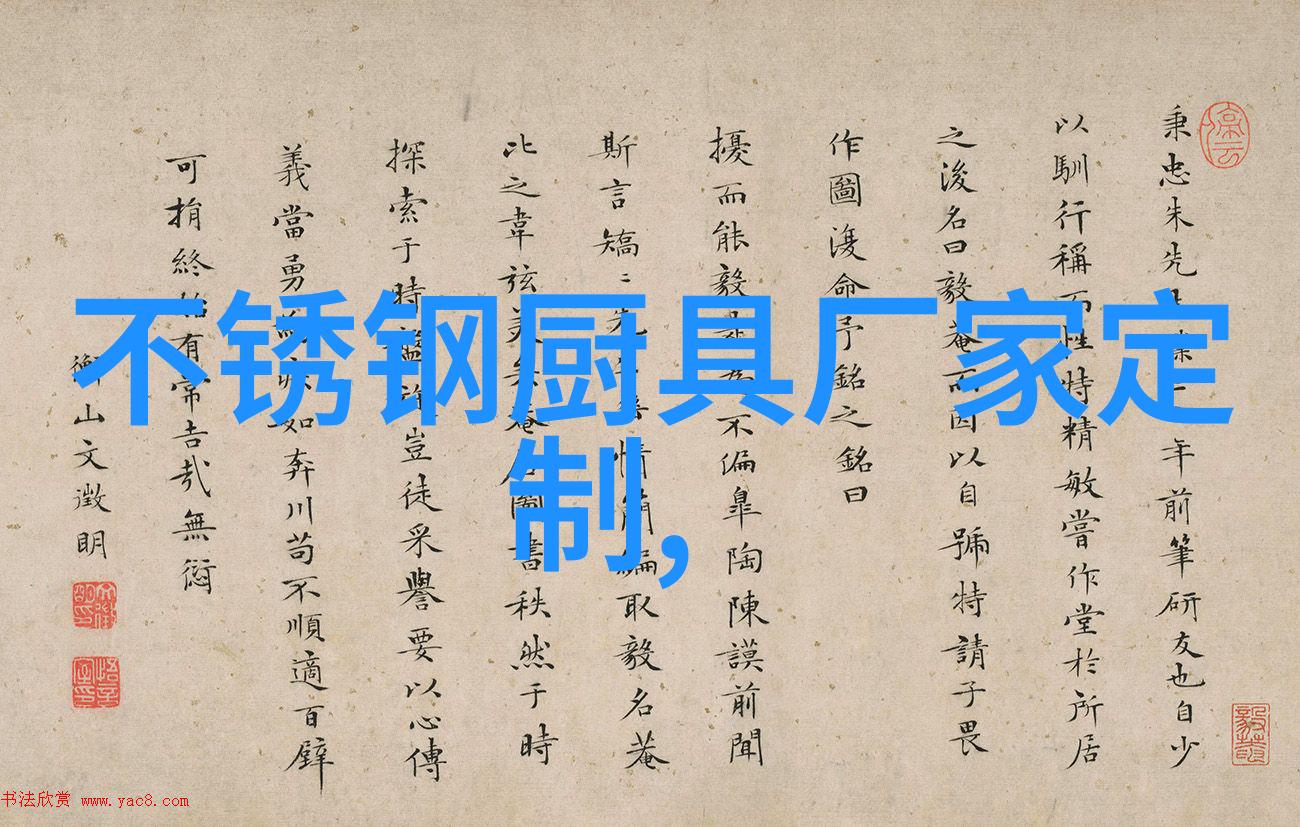 不锈钢厨具厂家定
制,
秉忠朱先 年前筆研友也自少
以馴行稱而性特精敏嘗作堂於所居
之後名曰毅菴而因以自號特請子畏
作圖復命予銘之銘曰
擾而能毅 不偏皐陶陳謨前聞
斯言矯〻先 情簡編取毅名菴
比之韋弦美 菴 圖書秩然于時
探索于時 豈徒采譽要以心傳
義當勇 如奔川苟不順適百壁
可捐終始有常吉哉無愆
衡山文徵明
书法欣赏 www.yac8.com